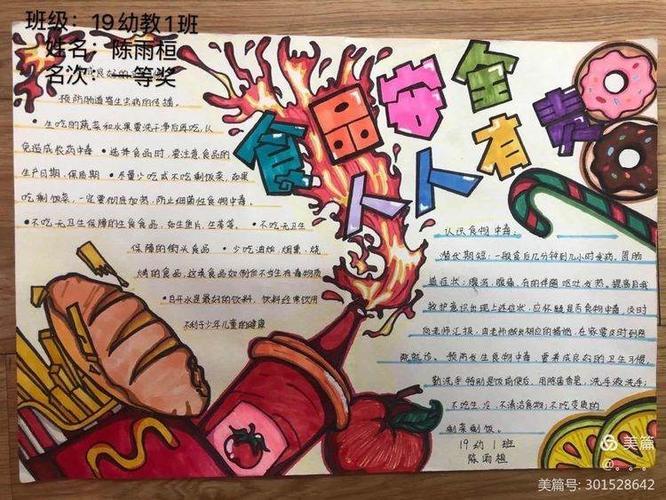 班级：19幼教1班
姓名：陈雨桓
名次：一等奖
食品安全
人人有责
预防肠道寄生虫病的传播。
• 生吃的蔬菜和水果要洗干净后再吃，以
免造成农药中毒 • 选择食品时，要注意食品的
生产日期，保质期 • 尽量少吃或不吃剩饭菜，如果
吃剩饭菜，一定要彻底加热，防止细菌性食物中毒。
• 不吃无卫生保障的生食食品，如生鱼片，生 • 不吃无卫生
保障的街头食品 • 少吃油炸，烟熏，烧
烤的食品，这类食品如制作不当生有毒物质
• 白开水是最好的饮料，饮料经常饮用
不利于少年儿童的健康
认识食物中毒：
潜伏期短：一般食后几分钟到几小时发病，胃肠
道症状：腹泻，腹痛，有的伴随呕吐发热，提高自我
救护意识出现上述症状，应怀疑是否食物中毒，及时
向老师汇报，由老师做出相应的措施，在家要及时到医
院就诊。预防发生食物中毒，要养成良好的卫生习惯，
勤洗手特别是饭前便后，用除菌香皂，洗手液洗手；
不吃生，不清洁食物；不吃变质的
剩菜剩饭。
19幼1班
陈雨桓
美篇
美篇号: 301528642